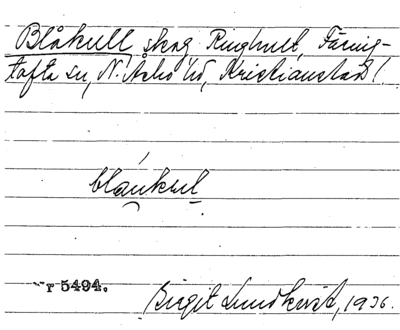 Blåkull skog Ringhult, Färing-
tofta sn, N. Åsbo hd, Kristianstad l.
blåukul
r 5494.
Birgit Lundkvist, 1936.